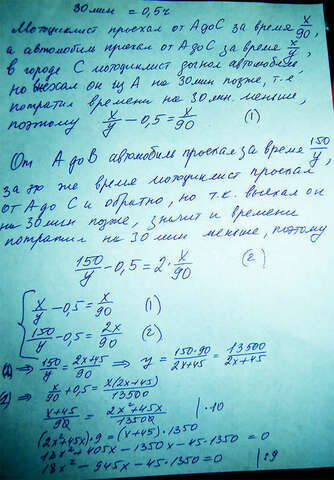 30 мин = 0,5 ч
Мотоциклист проехал от А до С за время x/90,
а автомобиль проехал от А до С за время x/y,
в городе С мотоциклист догнал автомобиль
но выехал он из А на 30 мин позже, т.е
потратил времени на 30 мин. меньше,
поэтому x/y - 0,5 = x/90 (1)
От А до В автомобиль проехал за время 150/y,
за это же время мотоциклист проехал
от А до С и обратно, но т.к. выехал он
на 30 мин позже, значит и времени
потратил на 30 мин меньше, поэтому
150/y - 0,5 = 2 · x/90 (2)
x/y - 0,5 = x/90 (1)
150/y - 0,5 = 2x/90 (2)
⇒ 150/y = 2x+45/90 ⇒ y = 150·90/2x+45 = 13500/2x+45
⇒ x/90 + 0,5 = x(2x+45)/13500
x+45/90 = 2x²+45x/13500 | ·10
(2x²+45x)·9 = (x+45)·1350
18x² + 405x - 1350x - 45·1350 = 0
18x² - 945x - 45·1350 = 0 | :9